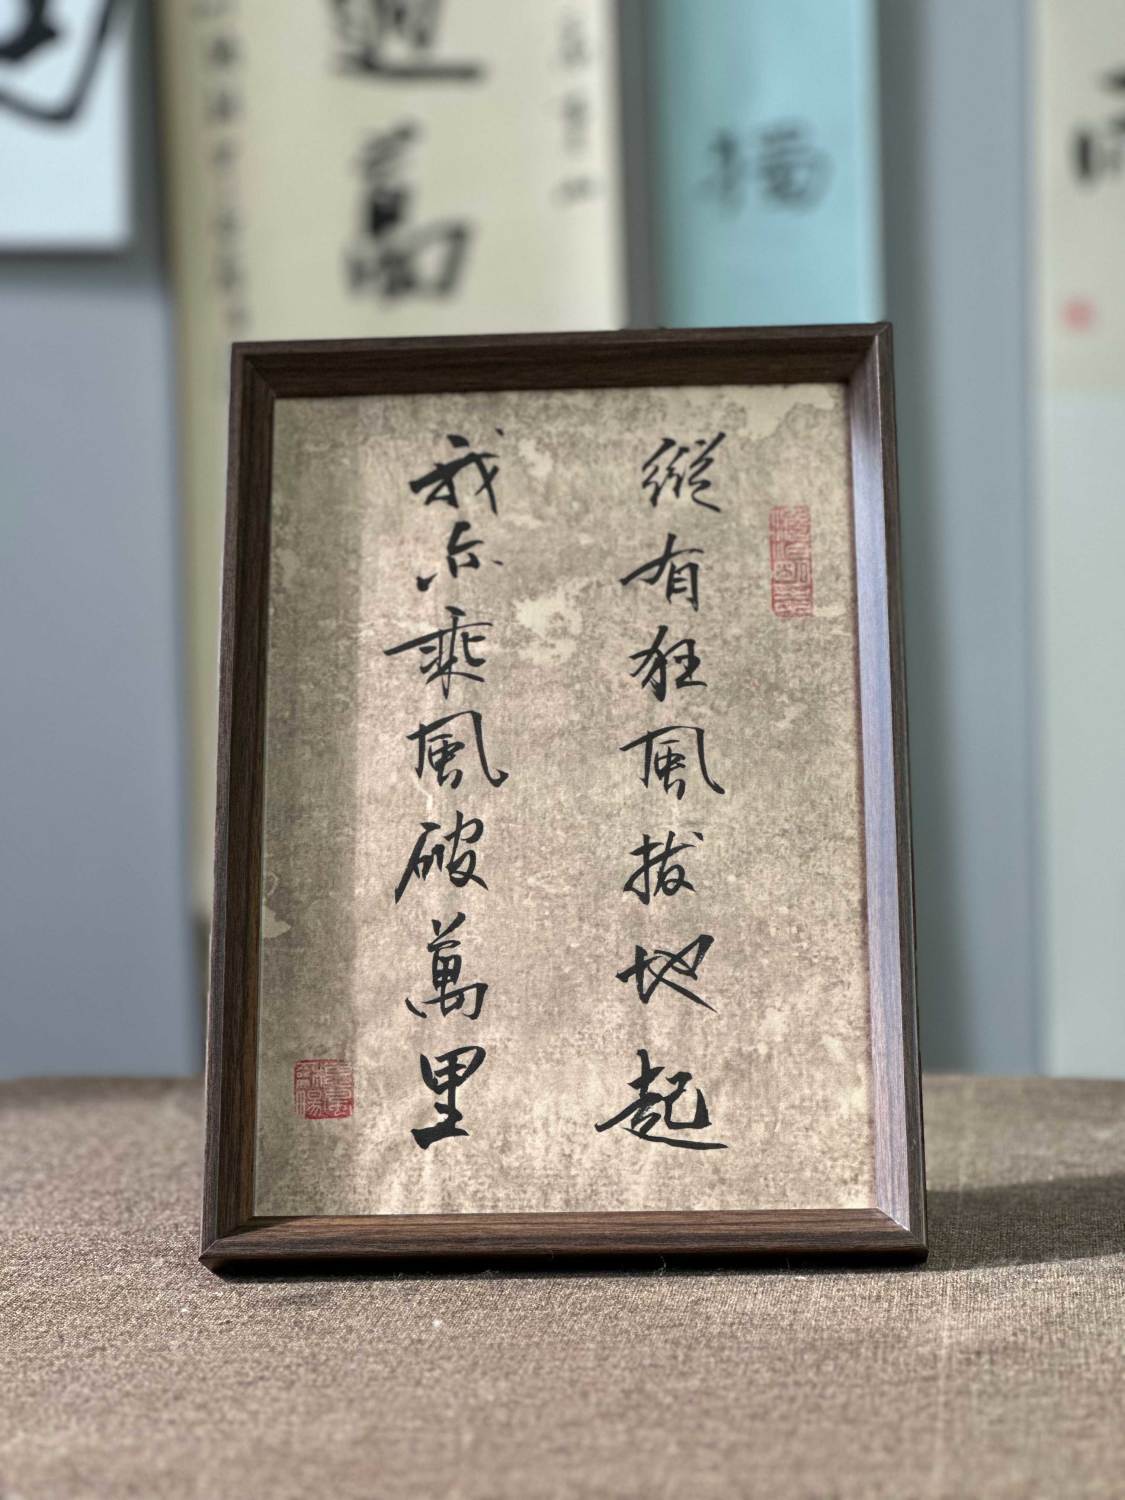 縱有狂風拔地起
我亦乘風破萬里
萬
摇